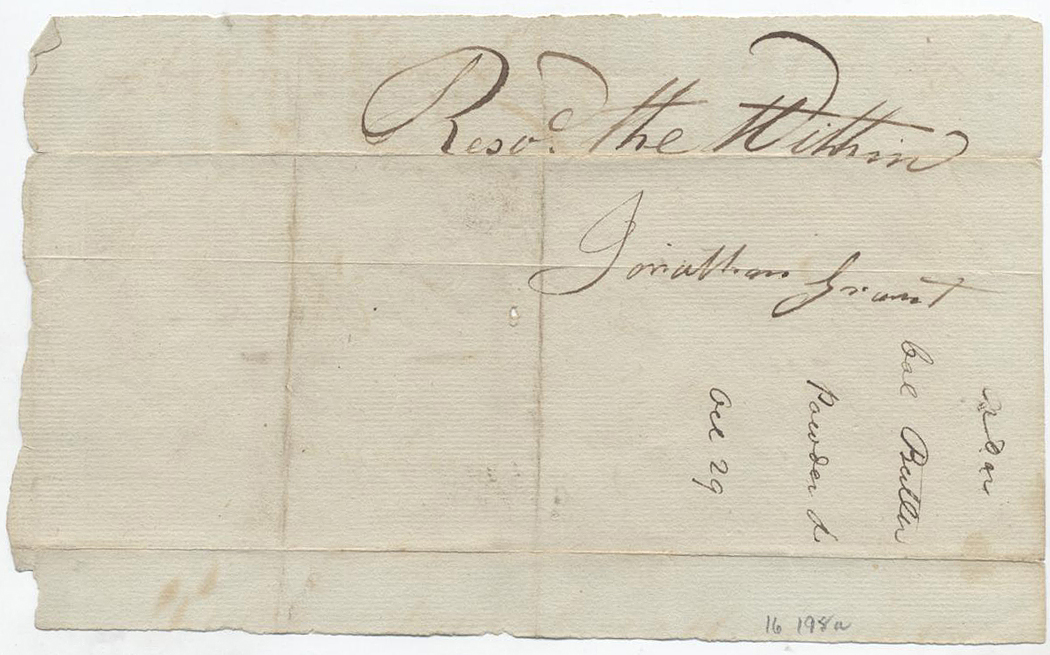 Resvd. the Within
Jonathan Grant
Col Butler
Powder &
Oct 29
16 198a